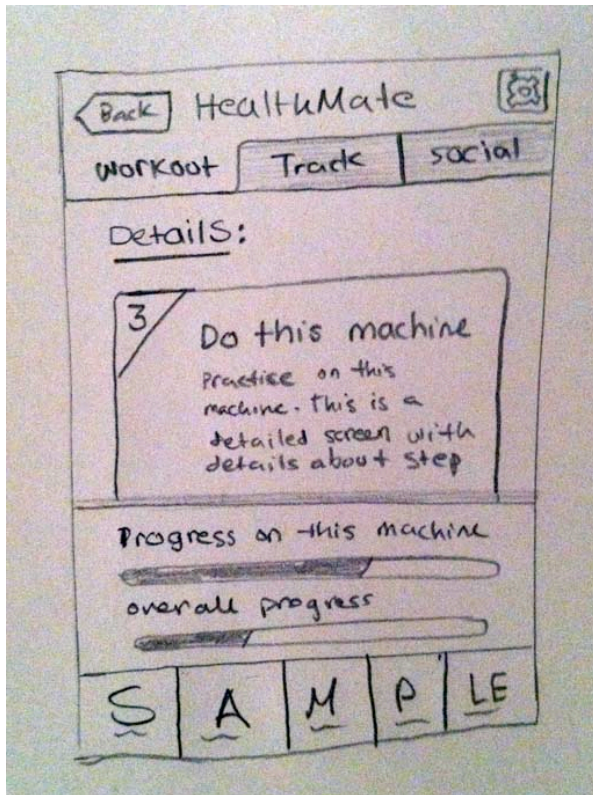 Back HealthMate
Workout Track social
Details:
3
Do this machine
Practise on this
machine. This is a
detailed screen with
details about step
Progress on this machine
overall progress
S A M P LE